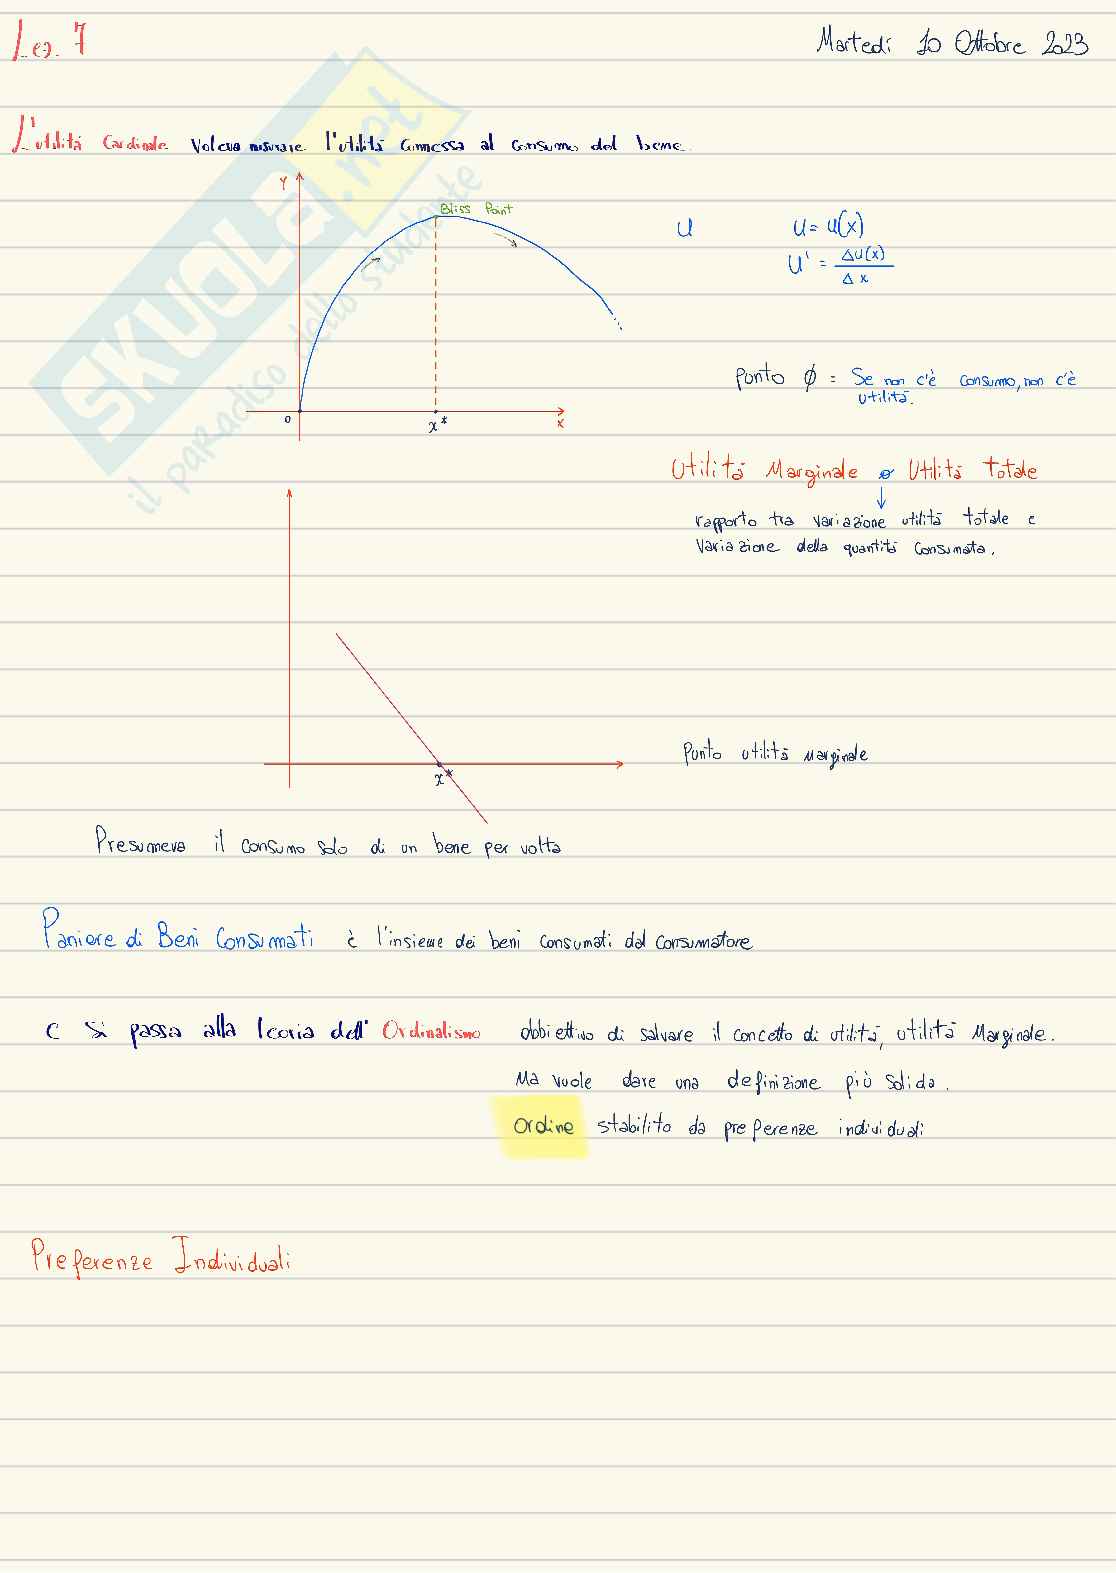 Lez. 7
Martedì 10 Ottobre 2023
L'utilità Cardinale Voleva misurare l'utilità Connessa al Consumo del bene.
Y
Bliss Point
U U = U(x)
U' = ΔU(x) / Δx
Punto ϕ = Se non c'è consumo, non c'è
utilità.
0 x* x
Utilità Marginale e Utilità Totale
rapporto tra variazione utilità totale e
variazione della quantità Consumata.
Punto utilità Marginale
x*
Presumeva il Consumo solo di un bene per volta
Paniere di Beni Consumati è l'insieme dei beni consumati dal consumatore
E Si passa alla Teoria dell' Ordinalismo obbiettivo di salvare il concetto di utilità, utilità Marginale.
Ma vuole dare una definizione più solida.
Ordine stabilito da preferenze individuali
Preferenze Individuali
SKUOLA.net
il paradiso dello studente